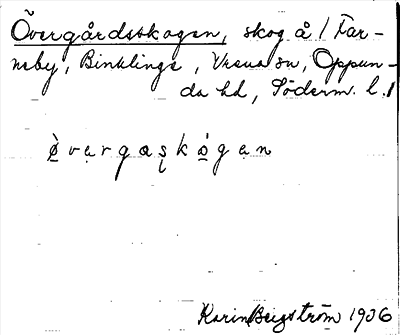 Övergårdsskogen, skog å / Far-
neby, Binklinge, Vrena sn, Oppun-
da hd, Söderm. l.
övargaskogan
Karin Bergström 1936